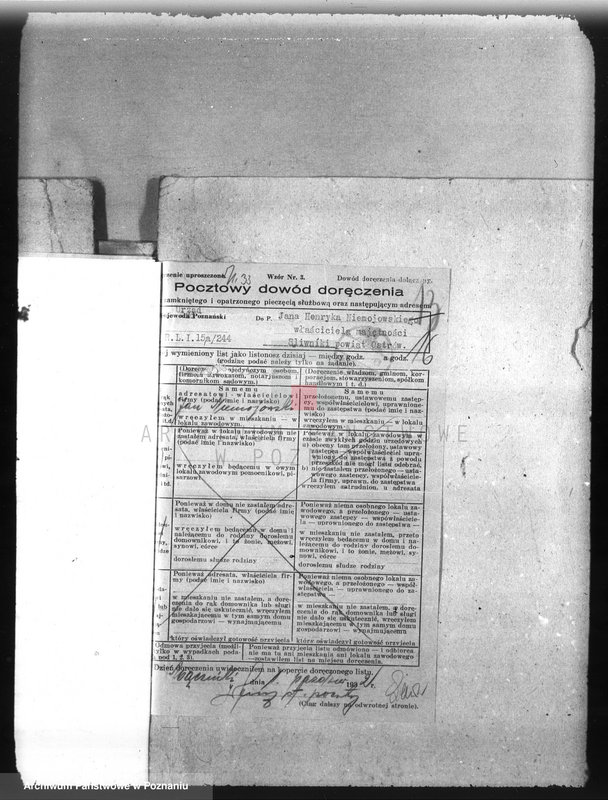 Wzór Nr. 3. Dowód doręczenia dołączyć.
Pocztowy dowód doręczenia
zamkniętego i opatrzonego pieczęcią służbową oraz następującym adresem
Urząd
Do P. Jana Henryka Niemojowskiego
Wojewoda Poznański
właściciela majętności
O.L.I.15a/244
Śliwniki powiat Ostrów.
wymieniony list jako listonosz dzisiaj — między godz. a godz.
(godzinę podać należy tylko na żądanie).
(Doręczenie pojedyńczym osobom, firmom adwokatom, notarjuszom i komornikom sądowym.)
(Doręczenie władzom, gminom, korporacjom, stowarzyszeniom, spółkom handlowym i t. d.)
Samemu
adresatowi - właścicielowi
firmy (podać imię i nazwisko)
Jan Niemojowski
wręczyłem w mieszkaniu — w
lokalu zawodowym.
Samemu
przełożonemu, ustawowemu zastępcy, współwłaścicielowi, uprawnionemu do zastępstwa (podać imię i nazwisko)
wręczyłem w mieszkaniu — w lokalu
zawodowym.
Ponieważ w lokalu zawodowym nie
zastałem adresata, właściciela firmy
(podać imię i nazwisko)
wręczyłem będącemu w owym
lokalu zawodowym pomocnikowi, pisarzowi.
Ponieważ w lokalu zawodowym w
czasie zwykłych godzin urzędowych
a) obecny tam przełożony, ustawowy
zastępca — współwłaściciel uprawniony do zastępstwa z powodu
przeszkód nie mógł listu odebrać,
b) nie zastałem przełożonego, ustawowego zastępcy, współwłaściciela
firmy, uprawn. do zastępstwa
wręczyłem zatrudnion. u adresata
Ponieważ w domu nie zastałem adresata, właściciela firmy (podać imię
i nazwisko)
wręczyłem będącemu w domu i
należącemu do rodziny dorosłemu
domownikowi, i to żonie, mężowi,
synowi, córce
dorosłemu słudze rodziny
Ponieważ niema osobnego lokalu zawodowego, a przełożonego — ustawowego zastępcy — współwłaściciela — uprawnionego do zastępstwa —
w mieszkaniu nie zastałem, przeto
wręczyłem będącemu w domu i należącemu do rodziny dorosłemu domownikowi, i to żonie, mężowi,
synowi, córce
dorosłemu słudze rodziny
Ponieważ adresata, właściciela firmy (podać imię i nazwisko)
w mieszkaniu nie zastałem, a doręczenia do rąk domownika lub sługi
nie dało się uskutecznić, wręczyłem
mieszkającemu w tym samym domu
gospodarzowi — wynajmującemu
który oświadczył gotowość przyjęcia
Ponieważ niema osobnego lokalu zawodowego, a przełożonego — współwłaściciela — uprawnionego do zastępstwa
w mieszkaniu nie zastałem, a doręczenia do rąk domownika lub sługi
nie dało się uskutecznić, wręczyłem
mieszkającemu w tym samym domu
gospodarzowi — wynajmującemu
który oświadczył gotowość przyjęcia
Odmowa przyjęcia (możliwa tylko w wypadkach podanych pod 1, 2, 3).
Ponieważ przyjęcia listu odmówiono — i odbiorca
nie ma tu ani mieszkania ani lokalu zawodowego
—zostawiłem list na miejscu doręczenia.
Dzień doręczenia uwidoczniłem na kopercie doręczonego listu.
dnia 193 r.
(Ciąg dalszy na odwrotnej stronie).
ARCHIWUM PAŃSTWOWE
W POZNANIU
Archiwum Państwowe w Poznaniu